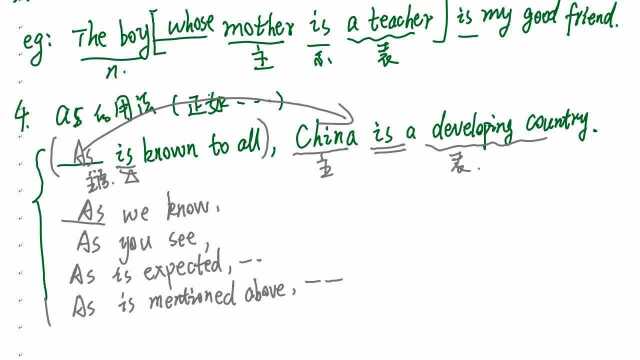 eg: The boy [whose mother is a teacher] is my good friend.
n. 主 系 表
4. as的用法（正如---）
(As is known to all), China is a developing country.
主语. 主 表.
As we know,
As you see,
As is expected, --.
As is mentioned above, ——